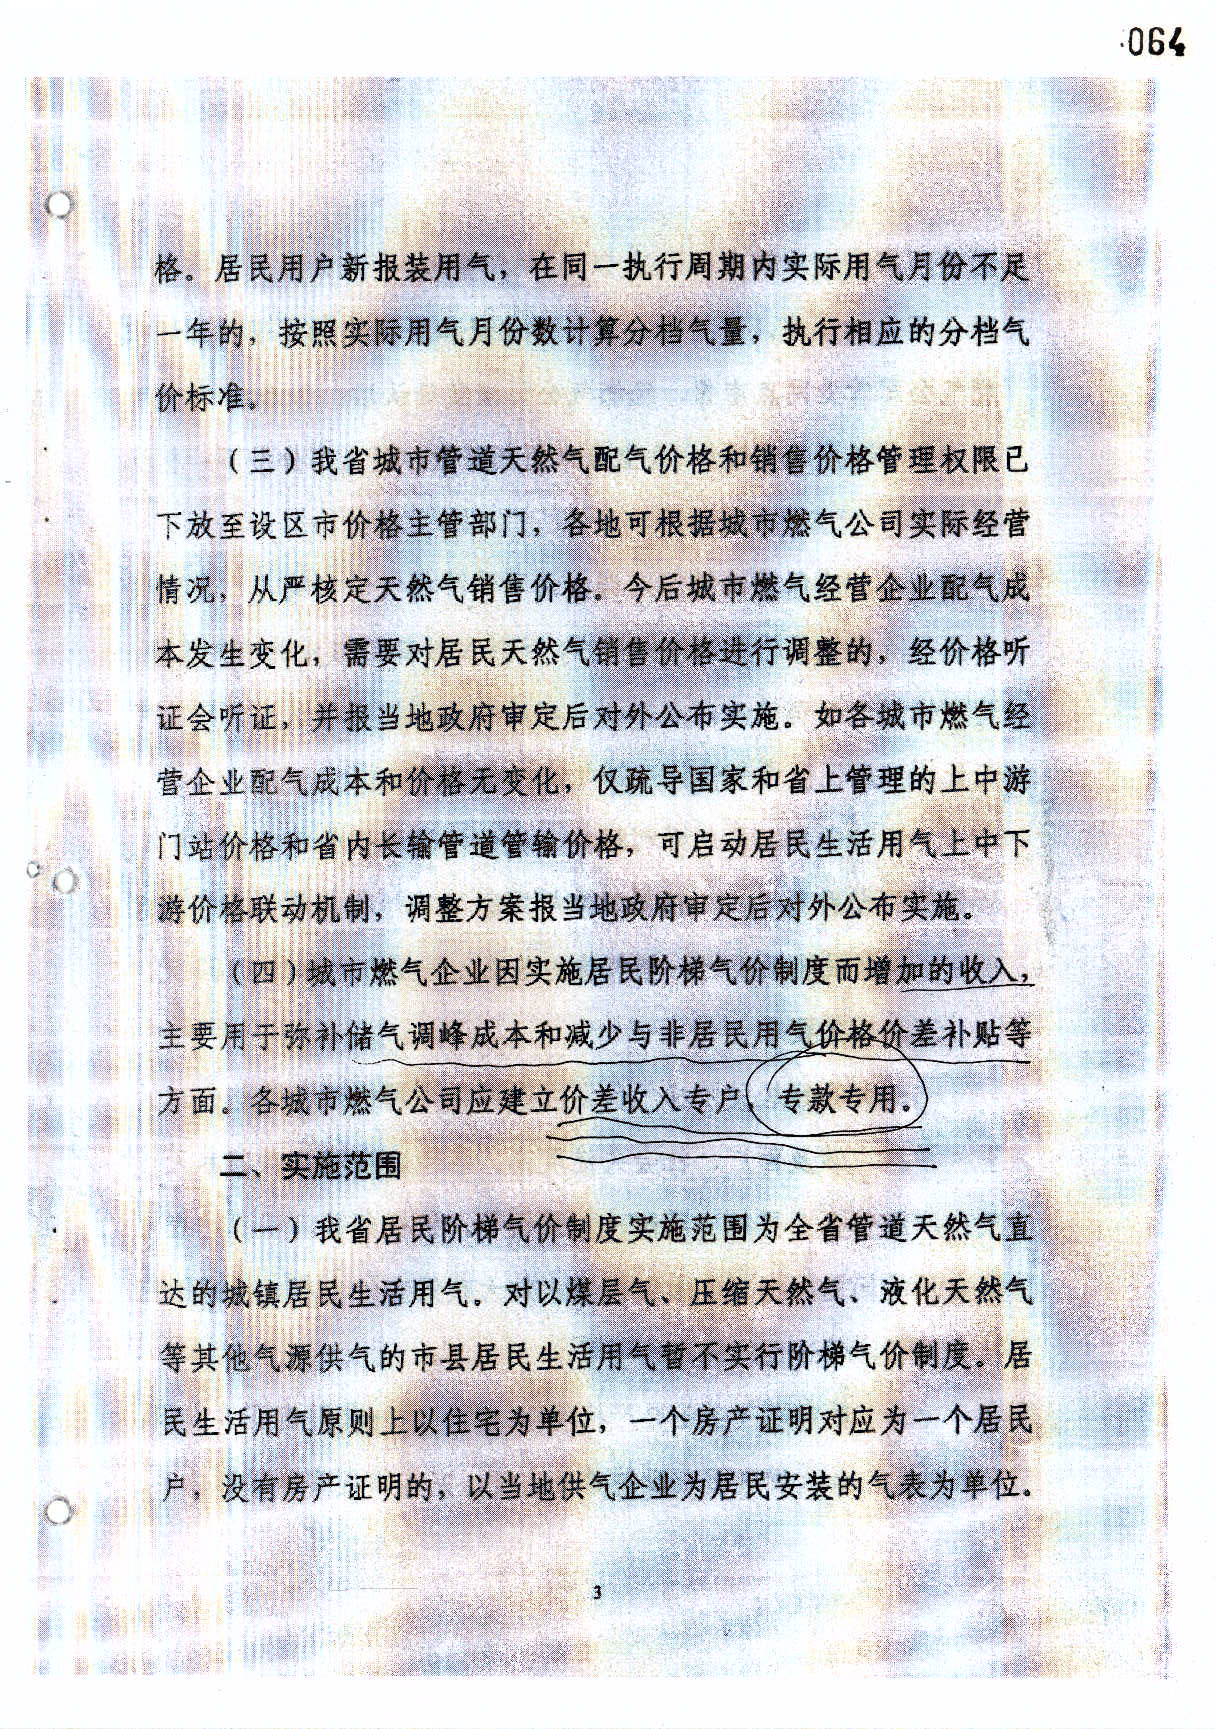 064
格。居民用户新报装用气，在同一执行周期内实际用气月份不足
一年的，按照实际用气月份数计算分档气量，执行相应的分档气
价标准。
（三）我省城市管道天然气配气价格和销售价格管理权限已
下放至设区市价格主管部门，各地可根据城市燃气公司实际经营
情况，从严核定天然气销售价格。今后城市燃气经营企业配气成
本发生变化，需要对居民天然气销售价格进行调整的，经价格听
证会听证，并报当地政府审定后对外公布实施。如各城市燃气经
营企业配气成本和价格无变化，仅疏导国家和省上管理的上中游
门站价格和省内长输管道管输价格，可启动居民生活用气上中下
游价格联动机制，调整方案报当地政府审定后对外公布实施。
（四）城市燃气企业因实施居民阶梯气价制度而增加的收入，
主要用于弥补储气调峰成本和减少与非居民用气价格价差补贴等
方面。各城市燃气公司应建立价差收入专户，专款专用。
二、实施范围
（一）我省居民阶梯气价制度实施范围为全省管道天然气直
达的城镇居民生活用气。对以煤层气、压缩天然气、液化天然气
等其他气源供气的市县居民生活用气暂不实行阶梯气价制度。居
民生活用气原则上以住宅为单位，一个房产证明对应为一个居民
户，没有房产证明的，以当地供气企业为居民安装的气表为单位。
3